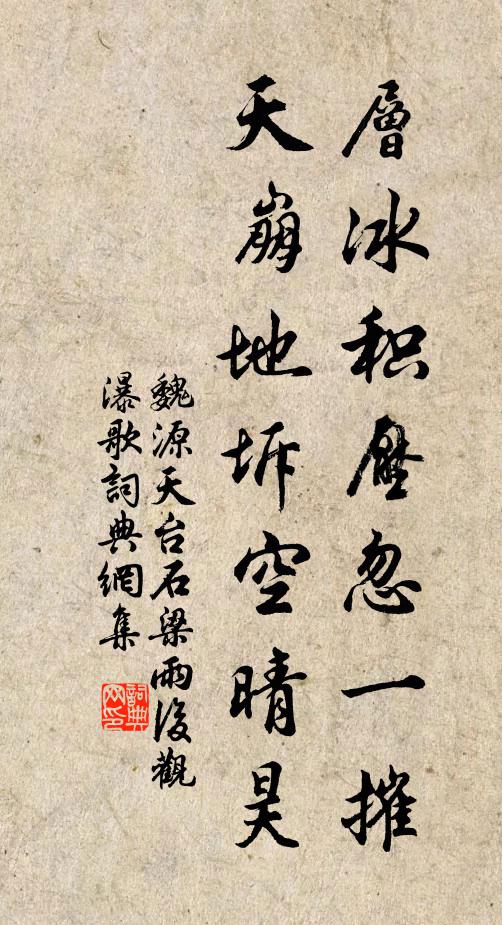 層冰积壓忽一摧
天崩地坼空晴昊
魏源天台石梁雨後觀
瀑歌詞典網集
詞典
网印